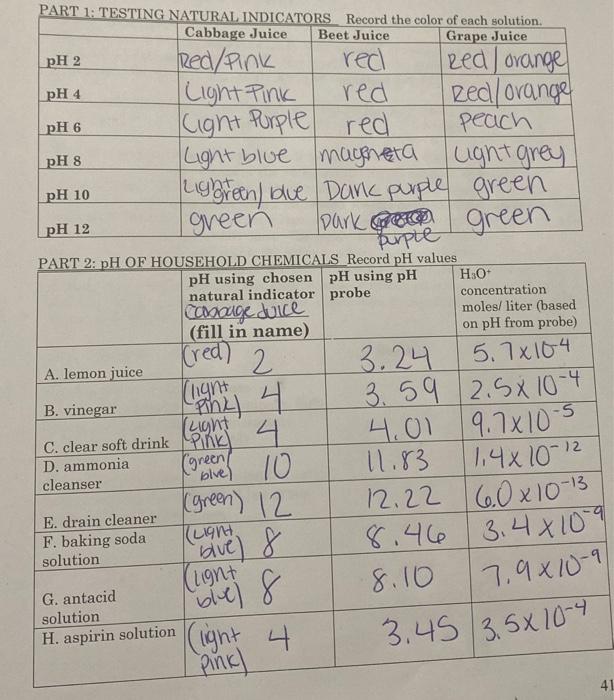 PART 1: TESTING NATURAL INDICATORS Record the color of each solution.
Cabbage Juice Beet Juice Grape Juice
pH 2 Red/Pink red Red/orange
pH 4 Light Pink red Red/orange
pH 6 Light Purple red Peach
pH 8 Light blue magneta Light grey
pH 10 Light green/blue Dark purple green
pH 12 green Dark purple green
PART 2: pH OF HOUSEHOLD CHEMICALS Record pH values
pH using chosen natural indicator Cabbage Juice (fill in name) pH using pH probe H₃O⁺ concentration moles/ liter (based on pH from probe)
A. lemon juice (red) 2 3.24 5.7x10-4
B. vinegar (light Pink) 4 3.59 2.5x10-4
C. clear soft drink (Light Pink) 4 4.01 9.7x10-5
D. ammonia cleanser (green/blue) 10 11.83 1.4x10-12
E. drain cleaner (green) 12 12.22 6.0x10-13
F. baking soda solution (Light blue) 8 8.46 3.4x10-9
G. antacid solution (light blue) 8 8.10 7.9x10-9
H. aspirin solution (light pink) 4 3.45 3.5x10-4
41